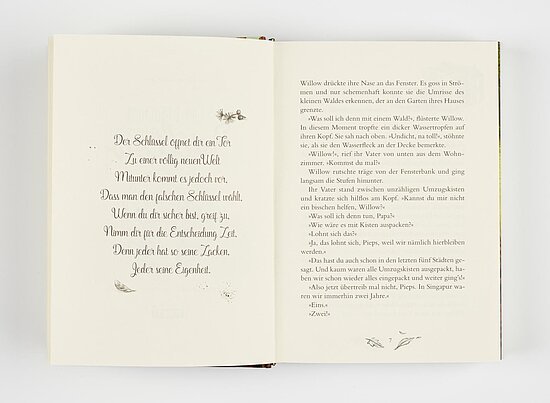 Der Schlüssel öffnet dir ein Tor
Zu einer völlig neuen Welt
Mitunter kommt es jedoch vor,
Dass man den falschen Schlüssel wählt.
Wenn du dir sicher bist, greif zu,
Nimm dir für die Entscheidung Zeit.
Denn jeder hat so seine Zacken,
Jeder seine Eigenheit.
Willow drückte ihre Nase an das Fenster. Es goss in Strö-
men und nur schemenhaft konnte sie die Umrisse des
kleinen Waldes erkennen, der an den Garten ihres Hauses
grenzte.
»Was soll ich denn mit einem Wald?«, flüsterte Willow.
In diesem Moment tropfte ein dicker Wassertropfen auf
ihren Kopf. Sie sah nach oben. »Undicht, na toll!«, stöhnte
sie, als sie den Wasserfleck an der Decke bemerkte.
»Willow!«, rief ihr Vater von unten aus dem Wohn-
zimmer. »Kommst du mal?«
Willow rutschte träge von der Fensterbank und ging
langsam die Stufen hinunter.
Ihr Vater stand zwischen unzähligen Umzugskisten
und kratzte sich hilflos am Kopf. »Kannst du mir nicht
ein bisschen helfen, Willow?«
»Was soll ich denn tun, Papa?«
»Wie wäre es mit Kisten auspacken?«
»Lohnt sich das?«
»Ja, das lohnt sich, Pieps, weil wir nämlich hierbleiben
werden.«
»Das hast du auch schon in den letzten fünf Städten ge-
sagt. Und kaum waren alle Umzugskisten ausgepackt, ha-
ben wir schon wieder alles eingepackt und weiter ging's!«
»Also jetzt übertreib mal nicht, Pieps. In Singapur wa-
ren wir immerhin zwei Jahre.«
»Eins.«
»Zwei!«
7